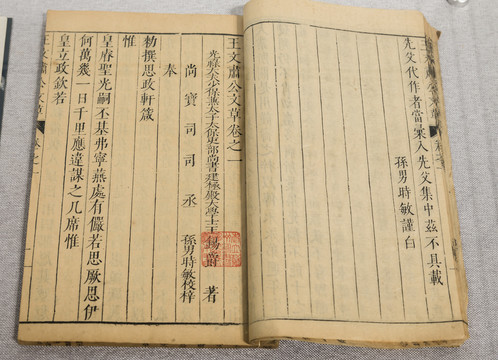 先父代作者當案入先父集中茲不具載
孫男時敏謹白
王文肅公文草卷之一
光祿大夫少保兼太子太保吏部尚書建極殿大學士王錫爵著
尚寶司司丞孫男時敏校梓
奉
勑撰思政軒箴
惟
皇睿聖光嗣丕基弗寧燕處有儼若思厥思伊
何萬幾一日千里應違謀之几席惟
皇立政欽若
王文肅公文草
卷之一